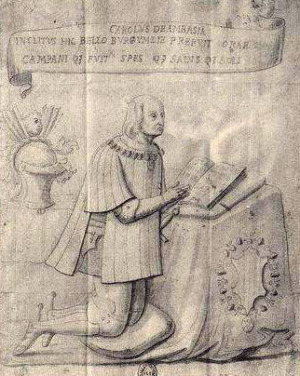 CAROLUS DEAMBASIA
INCLITUS HIC BELLO BURGUMDIE PREFUIT ORAE
CAMPANI QZ FUIT SPES QZ SALUS QZ SOLI